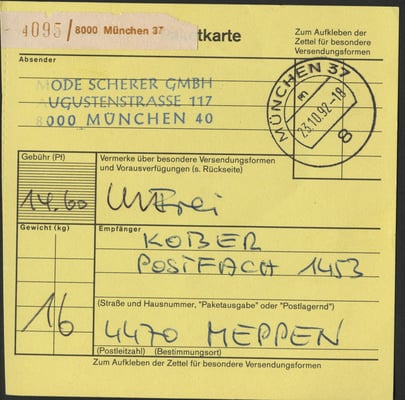 4095 / 8000 München 37
ketkarte
Zum Aufkleben der
Zettel für besondere
Versendungsformen
Absender
MODE SCHERER GMBH
AUGUSTENSTRASSE 117
8000 MÜNCHEN 40
MÜNCHEN 37
m
23.10.92-18
8
Gebühr (Pf)
Vermerke über besondere Versendungsformen
und Vorausverfügungen (s. Rückseite)
14.60
Gewicht (kg)
Empfänger
KOBER
POSTFACH 1453
(Straße und Hausnummer, "Paketausgabe" oder "Postlagernd")
16
4470 MEPPEN
(Postleitzahl) (Bestimmungsort)
Zum Aufkleben der Zettel für besondere Versendungsformen